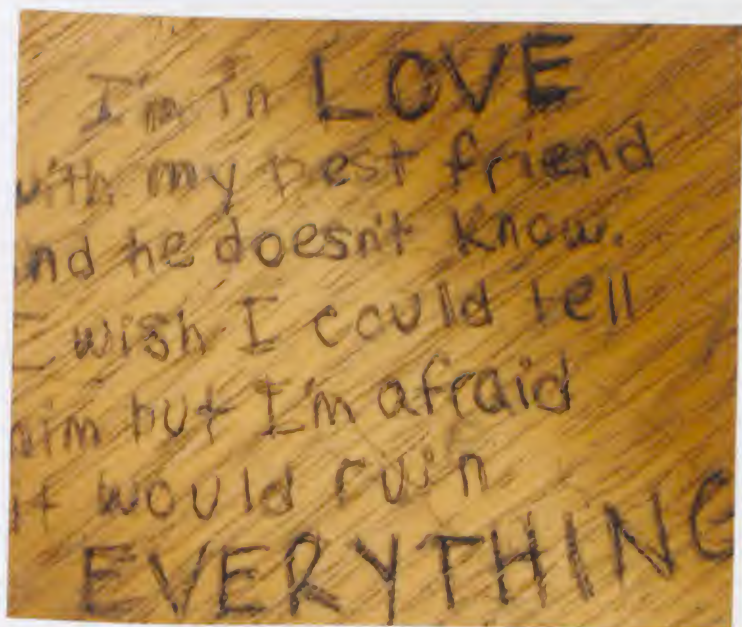 I'm in LOVE
with my best friend
and he doesn't know.
I wish I could tell
him but I'm afraid
it would ruin
EVERYTHING